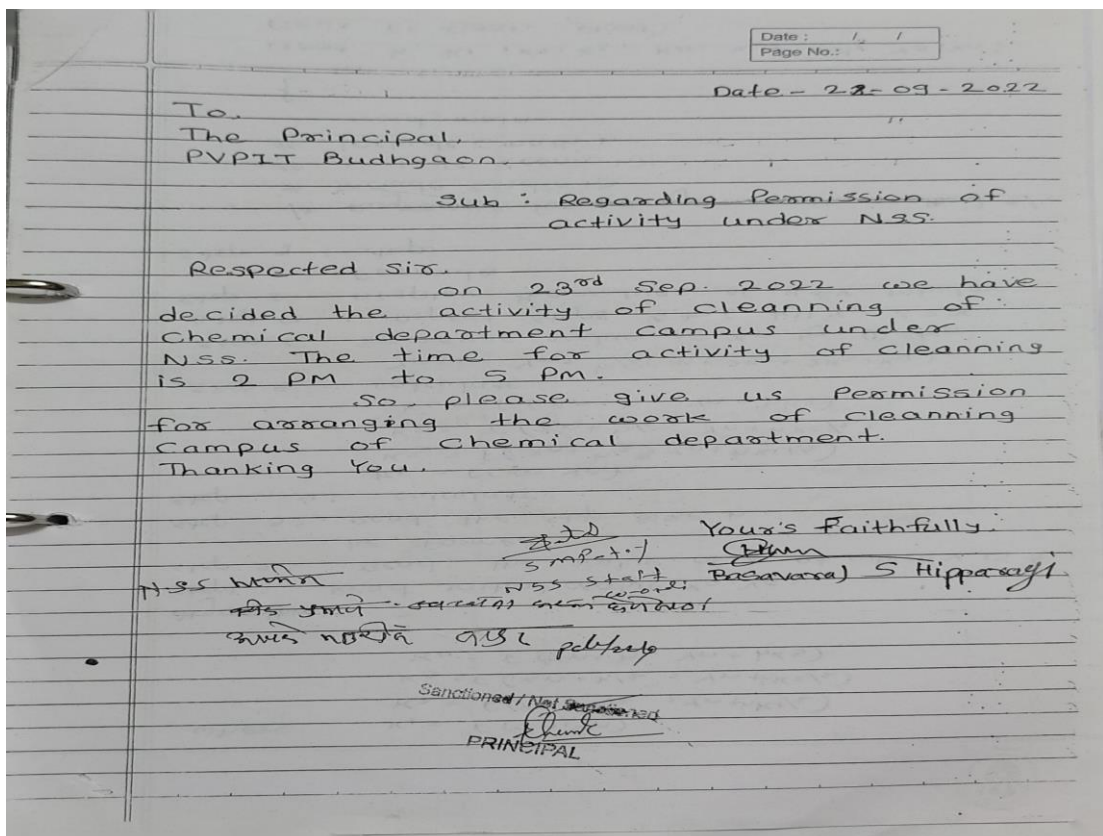 Date : / /
Page No.:
Date - 22-09-2022
To,
The Principal,
PVPIT Budhgaon.
Sub : Regarding Permission of
activity under NSS.
Respected sir,
on 23rd Sep. 2022 we have
decided the activity of cleanning of
Chemical department campus under
NSS. The time for activity of cleanning
is 2 PM to 5 PM.
So please give us Permission
for arranging the work of cleanning
campus of chemical department.
Thanking You.
Your's Faithfully
NSS Staff
Basavaraj S Hipparagi
Sanctioned / Not Sanctioned
PRINCIPAL